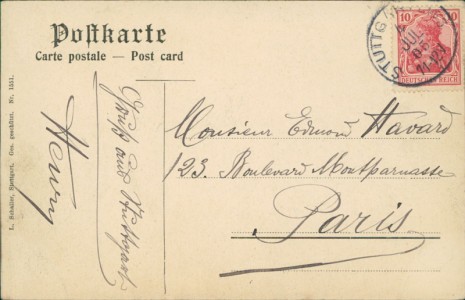 Postkarte
Carte postale — Post card
10 10
DEUTSCHES REICH
STUTTG
JUL
Monsieur Edmond Havard
123. Boulevard Montparnasse
Paris
Gruß aus Stuttgart
Henry
L. Schaller, Stuttgart, Ges. geschützt. Nr. 1551.